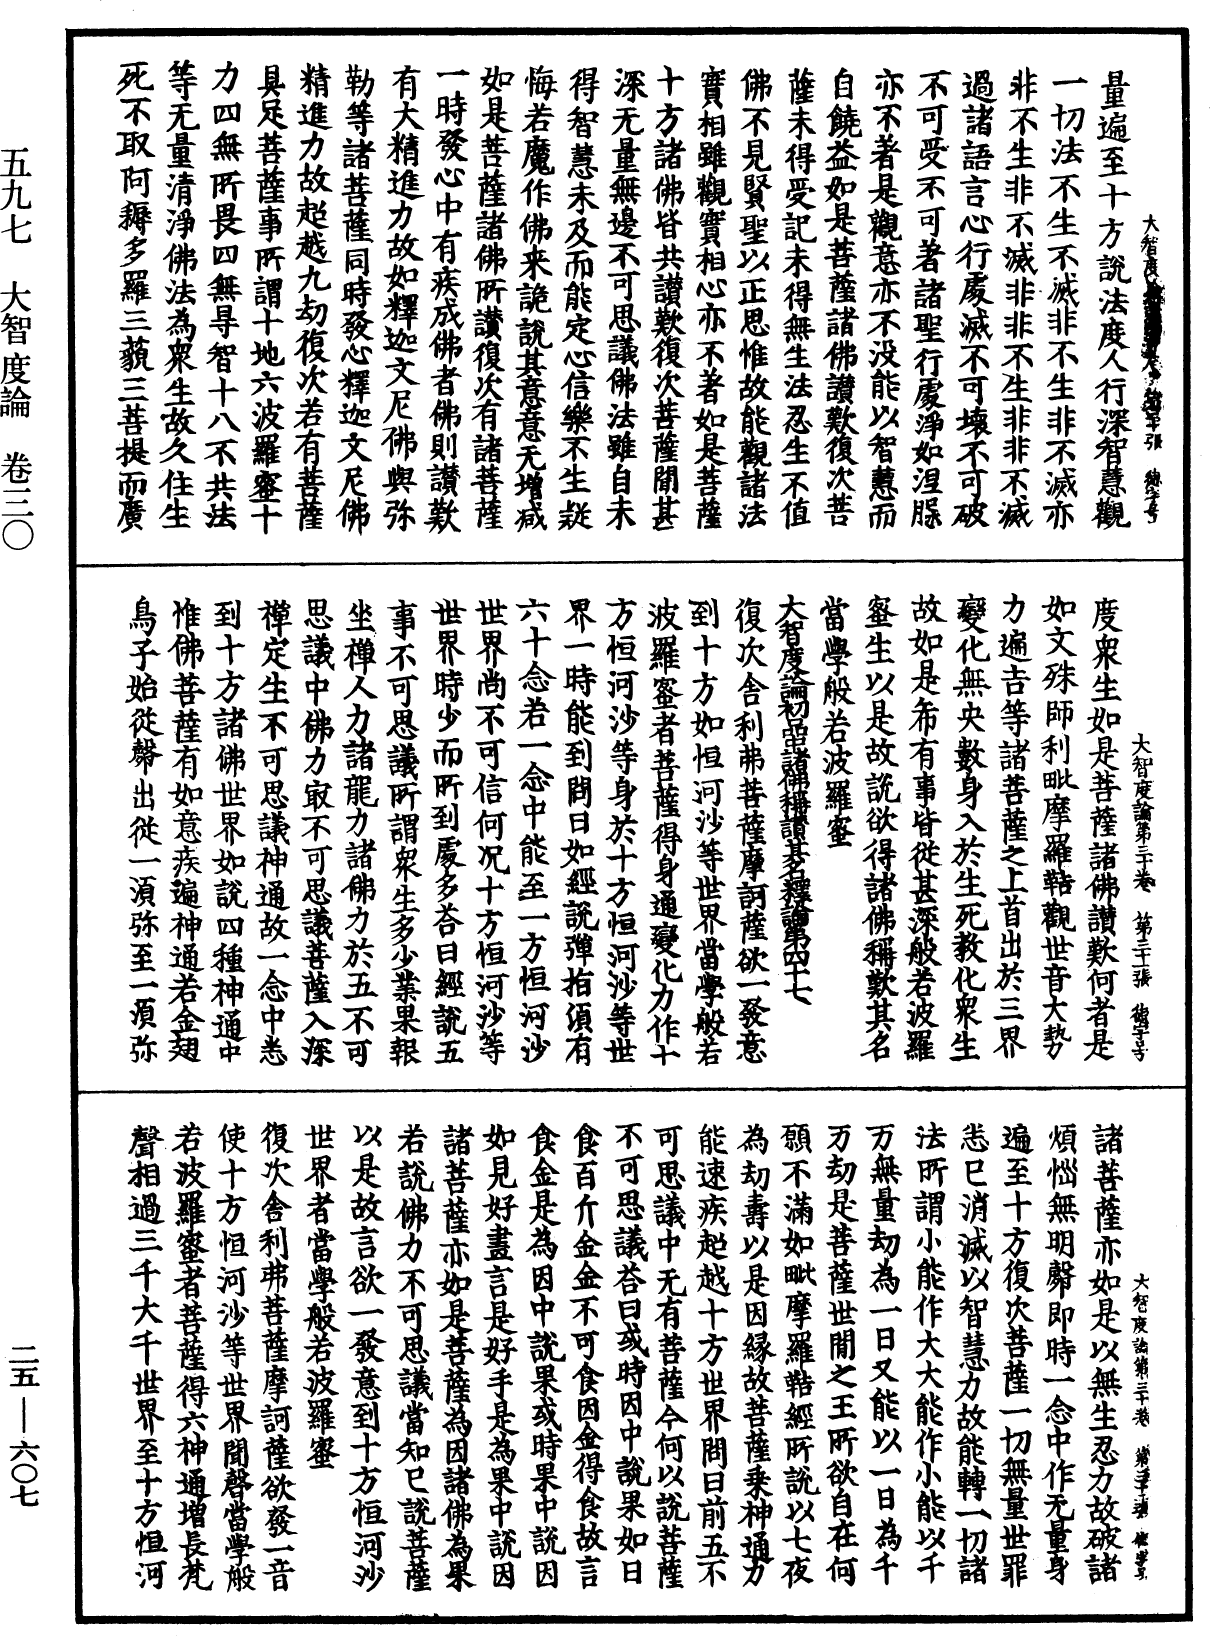 量遍至十方說法度人行深智慧觀
一切法不生不滅非不生非不滅亦
非不生非不滅非非不生非非不滅
過諸語言心行處滅不可壞不可破
不可受不可著諸聖行處淨如涅脲
亦不著是觀意亦不没能以智慧而
自饒益如是菩薩諸佛讃歎復次菩
薩未得受記未得無生法忍生不值
佛不見賢聖以正思惟故能觀諸法
實相雖觀實相心亦不著如是菩薩
十方諸佛皆共讃歎復次菩薩聞甚
深无量無邊不可思議佛法雖自未
得智慧未及而能定心信樂不生疑
悔若魔作佛来詭說其意意无增减
如是菩薩諸佛所讃復次有諸菩薩
一時發心中有疾成佛者佛則讃歎
有大精進力故如釋迦文尼佛與弥
勒等諸菩薩同時發心釋迦文尼佛
精進力故起越九劫復次若有菩薩
具足菩薩事所謂十地六波羅蜜十
力四無所畏四無㝵智十八不共法
等无量清淨佛法為衆生故久住生
死不取阿耨多羅三藐三菩提而廣
大智度論第三十卷 第三十一張 德字号
度衆生如是菩薩諸佛讃歎何者是
如文殊師利毗摩羅鞊觀世音大勢
力遍吉等諸菩薩之上首出於三界
變化無央數身入於生死教化衆生
故如是希有事皆從甚深般若波羅
蜜生以是故說欲得諸佛稱歎其名
當學般若波羅蜜
大智度論初品諸佛稱讃其名釋論第四十七
復次舍利弗菩薩摩訶薩欲一發意
到十方如恒河沙等世界當學般若
波羅蜜者菩薩得身通變化力作十
方恒河沙等身於十方恒河沙等世
界一時能到問曰如經說彈指頃有
六十念若一念中能至一方恒河沙
世界尚不可信何况十方恒河沙等
世界時少而所到處多荅曰經說五
事不可思議所謂衆生多少業果報
坐禪人力諸龍力諸佛力於五不可
思議中佛力㝡不可思議菩薩入深
禪定生不可思議神通故一念中悉
到十方諸佛世界如說四種神通中
惟佛菩薩有如意疾遍神通若金翅
鳥子始從㲉出從一湏弥至一湏弥
諸菩薩亦如是以無生忍力故破諸
煩惱無明㲉即時一念中作无量身
遍至十方復次菩薩一切無量世罪
悉已消滅以智慧力故能轉一切諸
法所謂小能作大大能作小能以千
万無量劫為一日又能以一日為千
万劫是菩薩世間之王所欲自在何
願不滿如毗摩羅鞊經所說以七夜
為劫壽以是因緣故菩薩乗神通力
能速疾起越十方世界問曰前五不
可思議中无有菩薩今何以說菩薩
不可思議荅曰或時因中說果如日
食百斤金金不可食因金得食故言
食金是為因中說果或時果中說因
如見好畫言是好手是為果中說因
諸菩薩亦如是菩薩為因諸佛為果
若說佛力不可思議當知已說菩薩
以是故言欲一發意到十方恒河沙
世界者當學般若波羅蜜
復次舍利弗菩薩摩訶薩欲發一音
使十方恒河沙等世界聞聲當學般
若波羅蜜者菩薩得六神通增長梵
聲相過三千大千世界至十方恒河
五九七 大智度論 卷三〇
二五—六〇七